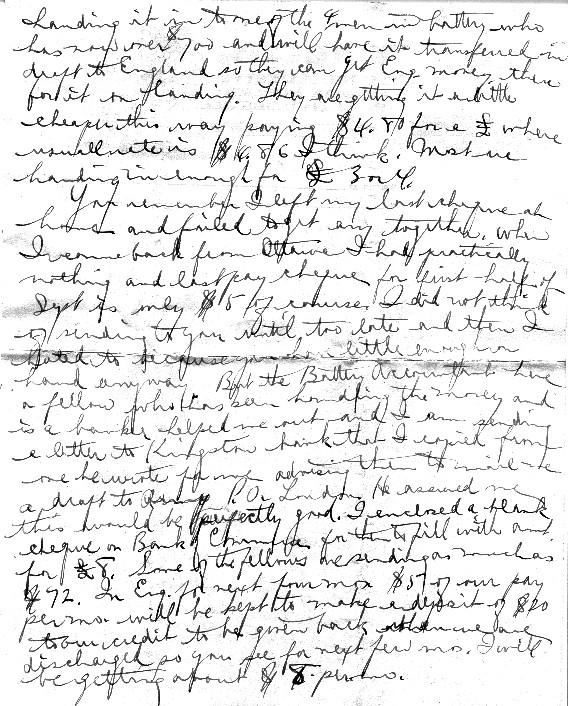 handing it in to one of the 4 men in battery who
has now over $700 and will have it transferred in
draft to England so they can get Eng. money there
for it on landing. They are getting it a little
cheaper this way paying $4.80 for a £ where
usual rate is $4.86 I think. Most are
handing in enough for £ 3 or 4.
You remember I left my last cheque at
home and failed to get any together. When
I came back from Ottawa I had practically
nothing and last pay cheque for first half of
Sept is only $15 of course. I did not think
of sending to you until too late and then I
hated to because you had little enough on
hand anyway. But the Battery Accountant have
a fellow who has been handling the money and
is a banker helped me out and I am sending
a letter to Kingston bank that I copied from
one he wrote for me advising them to mail me
a draft to Army P.O. London. He assured me
this would be perfectly good. I enclosed a blank
cheque on Bank of Commerce for them to fill with amt.
for £8. Some of the fellows are sending as much as
$72. In Eng. for next four mos $5 of our pay
per mo. will be kept to make a deposit of $20
to our credit to be given back when we are
discharged so you see for next few mos. I will
be getting about $8 per mo.